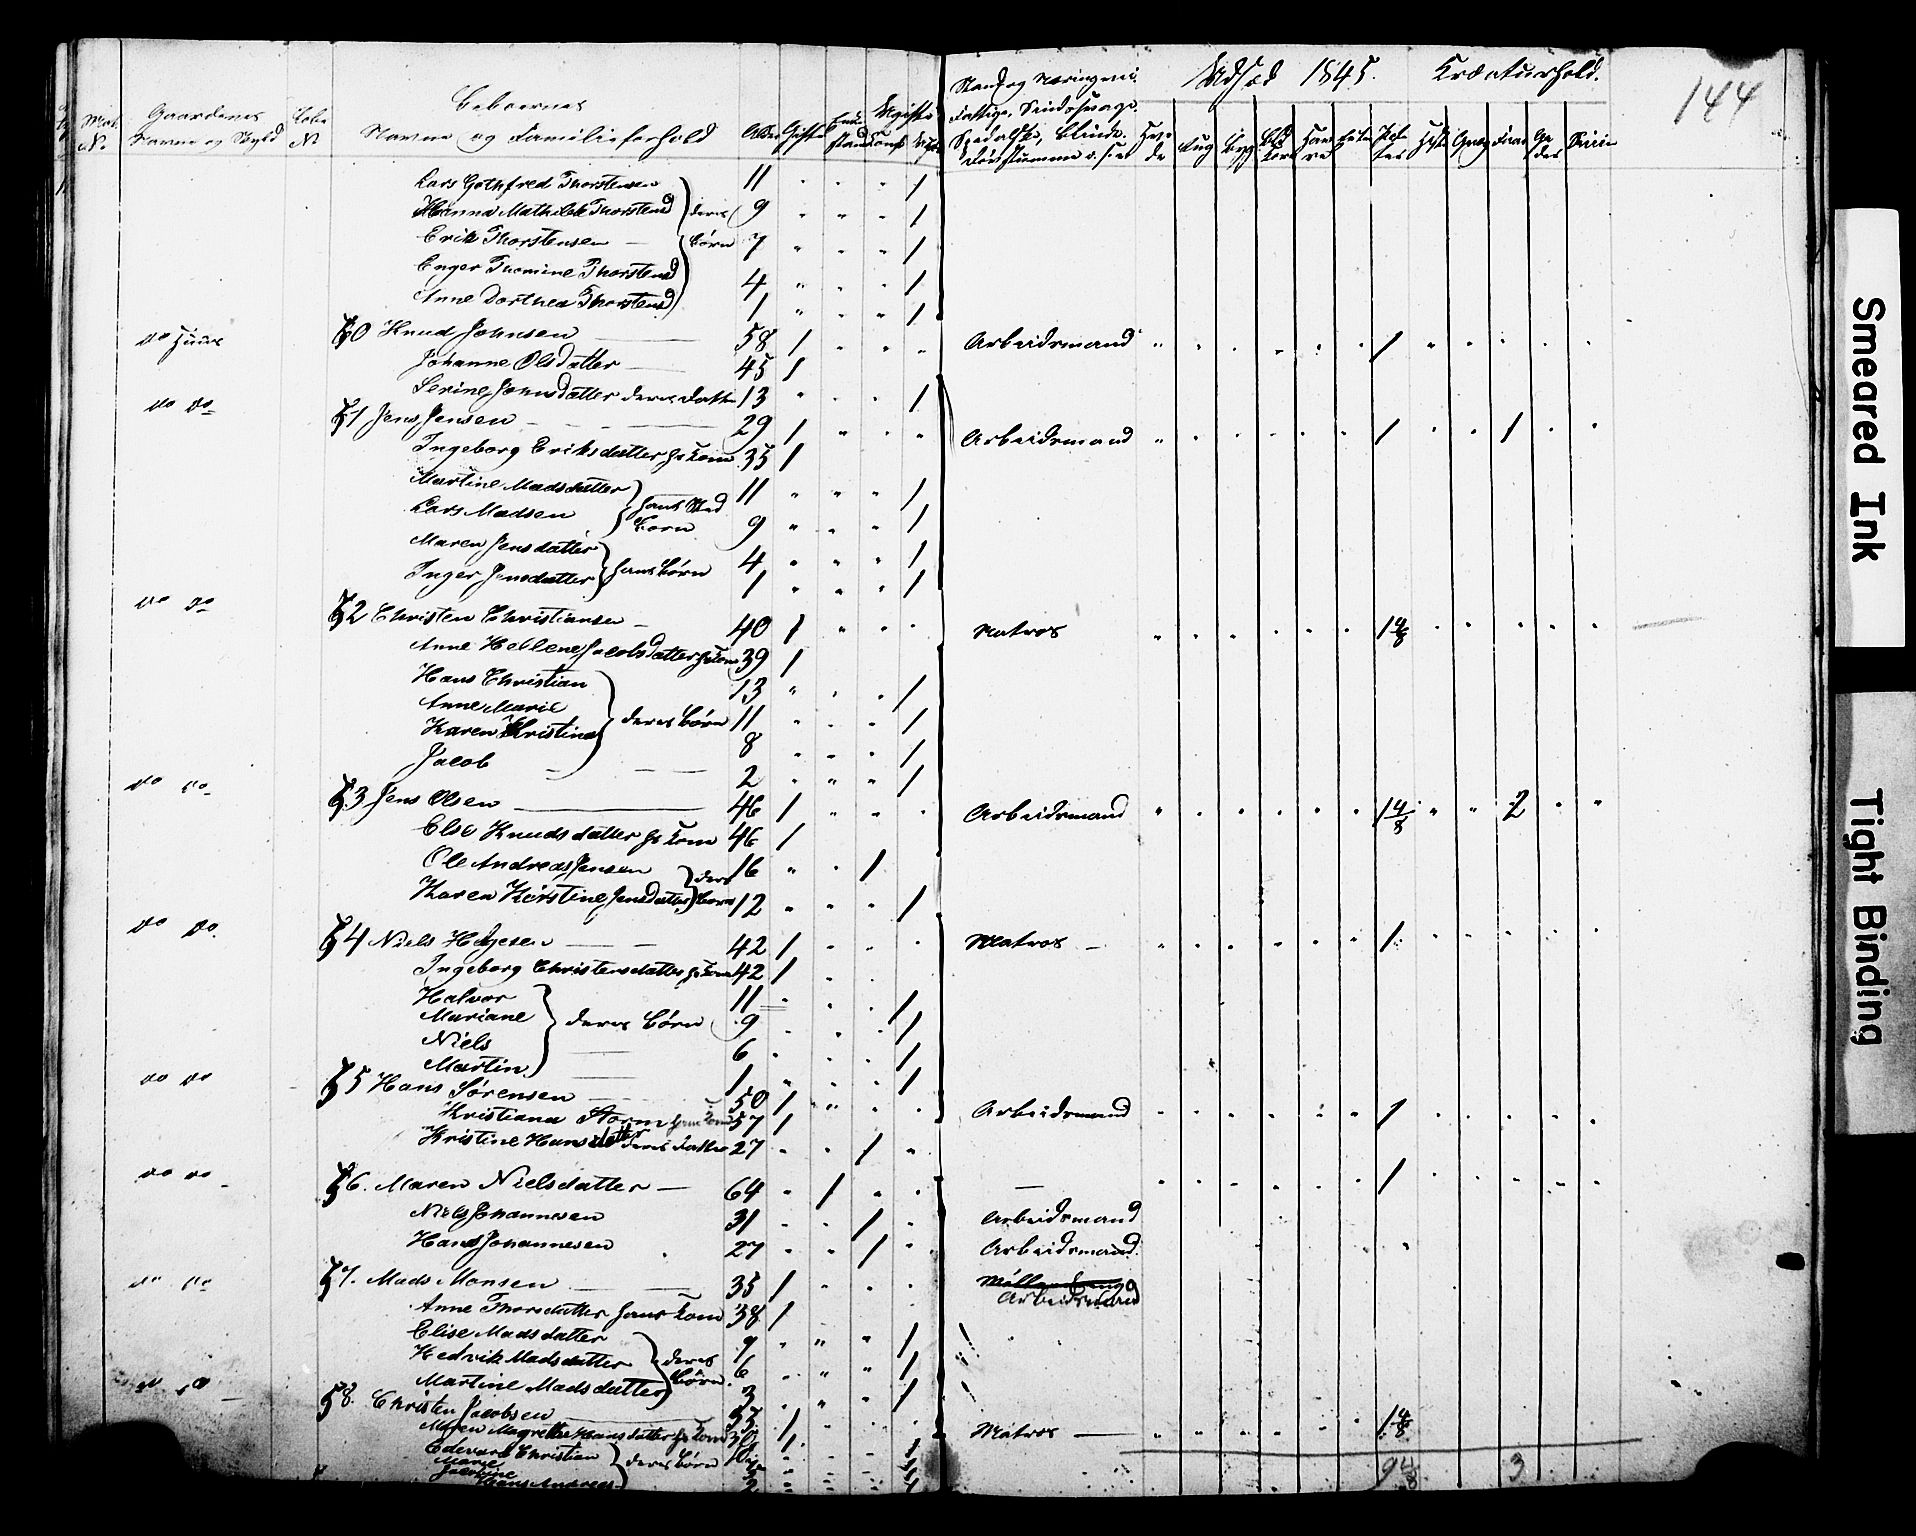 144
Udsæd 1845. Kreaturhold.
Beboernes
Gaardenes
Navne og Skyld
Navne og Familieforhold
Lars Gothfred Thorstensen 11 1
Hanna Mathilde Thorstensd deres 9 1
Erik Thorstensen børn 7 1
Enger Thomine Thorstensd 4 1
Anne Dorthea Thorstensd 1 1
do Huus 50 Knud Johnsen 58 1 Arbeidsmand 1
Johanne Olsdatter 45 1
Serine Johnsdatter deres Datter 13 1
do do 51 Jens Jensen 29 1 Arbeidsmand 1 1
Ingeborg Eriksdatter hs Kone 35 1
Martine Madsdatter 11 1
Lars Madsen børn 9 1
Maren Jensdatter 4 1
Inger Jensdatter hans børn 1 1
do do 52 Christen Christiansen 40 1 Matros 1 4/8
Anne Hellene Jacobsdatter hs Kone 39 1
Hans Christian 13 1
Anne Marie deres børn 11 1
Karen Kristine 8 1
Jacob 2 1
do do 53 Jens Olsen 46 1 Arbeidsmand 1 4/8 2
Else Knudsdatter hs Kone 46 1
Ole Andreas Jensen deres 16 1
Karen Kirstine Jensdatter børn 12 1
do do. 54 Niels Høyesen 42 1 Matros 1
Ingeborg Christensdatter hs Kone 42 1
Halvor 11 1
Mariane deres børn 9 1
Niels 6 1
Martin 1 1
do do 55 Hans Sørensen 50 1 Arbeidsmand 1
Kristiana Storm hans Kone 57 1
Kristine Hansdatter deres Datter 27 1
do do 56. Maren Nielsdatter 64 1 1
Niels Johannesen 31 1 Arbeidsmand
Hans Johannesen 27 1 Arbeidsmand.
do do 57. Mads Monsen 35 1
Arbeidsmand
Anne Thorsdatter hans Kone 38 1
Elise Madsdatter 9 1
Hedvik Madsdatter deres 6 1
Martine Madsdatter børn. 3 1
58. Christen Jacobsen 33 1 Matros 1 4/8
Maren Magrethe Hansdatter hs Kone 1
Edevard Christian deres børn
Marie
3
Smeared Ink
Tight Binding